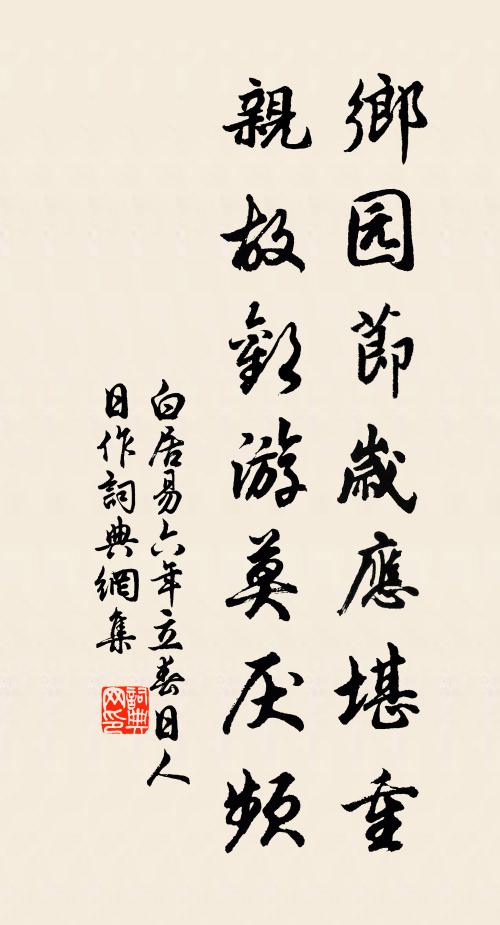 鄉园節歲應堪重
親故歡游莫厌頻
白居易六年立春日人
日作詞典網集
詞典網印